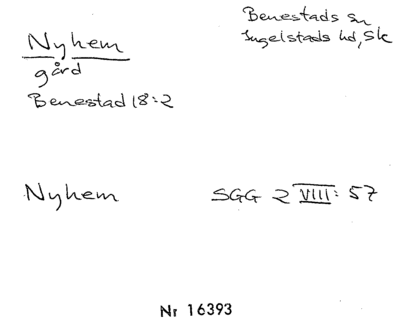 Nyhem
gård
Benestad 18:2
Benestads sn
Ingelstads hd, Sk
Nyhem
SGG 2 VIII: 57
Nr 16393